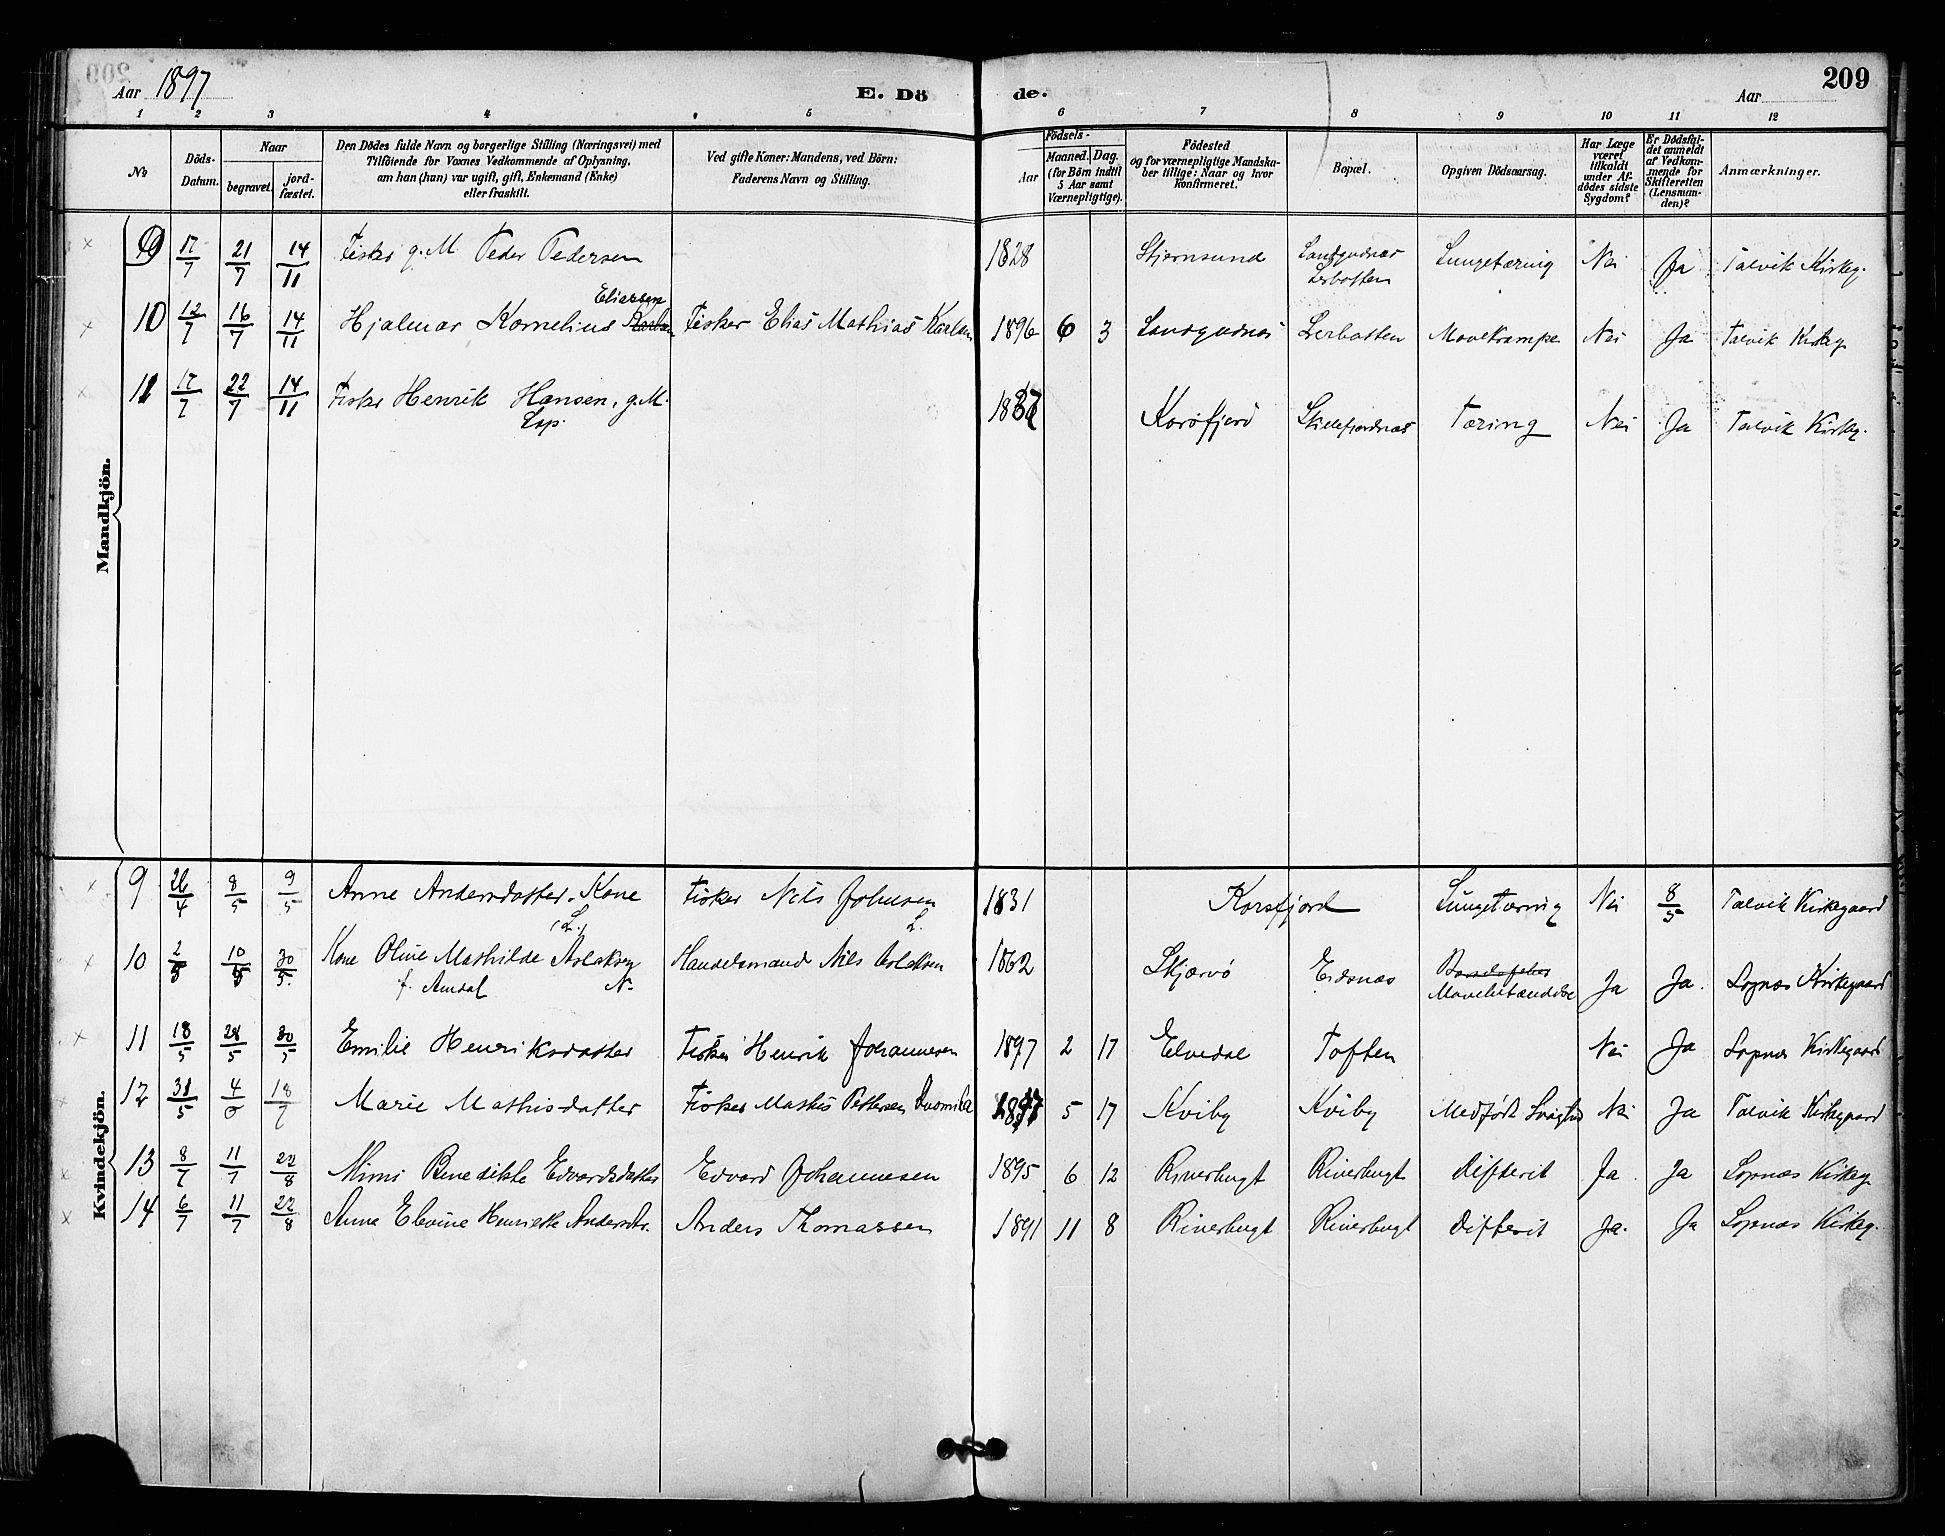 209
Aar 1897
E. Dö de.
Aar
1 2 3 4 5 6 7 8 9 10 11 12
No
Döds-Datum.
Naar
begravet.
jord-fæstet.
Den Dødes fulde Navn og borgerlige Stilling (Næringsvei) med
Tilföiende for Voxnes Vedkommende af Oplysning,
om han (hun) var ugift, gift, Enkemand (Enke)
eller fraskilt.
Ved gifte Koner: Mandens, ved Börn:
Faderens Navn og Stilling.
Födsels-
Aar
Maaned. Dag.
(for Börn indtil
5 Aar samt
Værnepligtige).
Födested
og for værnepligtige Mandska-
ber tillige: Naar og hvor
konfirmeret.
Bopæl.
Opgiven Dödsaarsag.
Har Læge
været
tilkaldt
under Af-
dödes sidste
Sygdom?
Er Dödsfal-
det anmeldt
af Vedkom-
mende for
Skifteretten
(Lensman-
den)?
Anmærkninger.
Mandkjön.
9 17/7 21/7 14/11 Fisker g. M. Peder Pedersen 1828 Stjernsund Landgudnæs Lerbotten Lungetæring Nei Ja Talvik Kirkeg.
10 12/7 16/7 14/11 Hjalmar Kornelius Eliassen Fisker Elias Mathias Karlsen 1896 6 3 Lerbotten Mavekrampe Nei Ja Talvik Kirkeg
11 17/7 22/7 14/11 Fisker Henrik Hansen, g. M. Lap. Korsfjord Skillefjordnæs Tæring Nei Ja Talvik Kirkeg.
Kvindekjön.
9 26/4 8/5 9/5 Anne Andersdatter, Kone (L.) Fisker Nils Johnsen L. 1831 Korsfjord Lungetæring Nei 8/5 Talvik Kirkegaard
10 2/5 10/5 30/5 Kone Oline Mathilde Aslaksen f. Amdal N. Handelsmand Nils Aslaksen 1862 Skjærvö Eidsnæs Ja Ja. Sopnæs Kirkegaard
11 18/5 28/5 30/5 Emilie Henriksdatter Fisker Henrik Johannesen 1897 2 17 Elvedal Toften Nei Ja Sopnæs Kirkegaard
12 31/5 4/6 18/7 Marie Mathisdatter Fisker Mathis Pettersen 1897 5 17 Kviby Kviby Medfödt Svaghed Nei Ja Talvik Kirkegaard
13 8/7 11/7 22/8 Mimi Benedikte Edvardsdatter Edvard Johannesen 1895 6 12 Riverbugt Riverbugt Difterit Ja Ja Sopnæs Kirkeg
14 6/7 11/7 22/8 Anna Elevine Henriette Andersdtr. Anders Thomassen 1891 11 8 Riverbugt Riverbugt Difterit Ja. Ja Sopnæs Kirkeg.